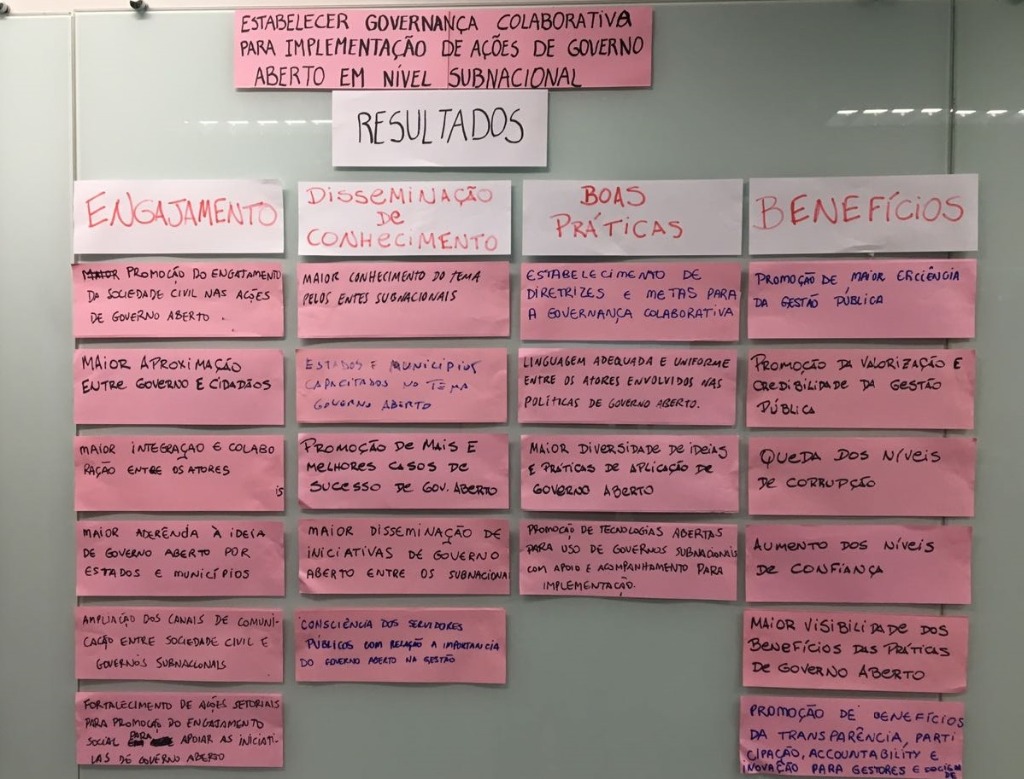 ESTABELECER GOVERNANÇA COLABORATIVA
PARA IMPLEMENTAÇÃO DE AÇÕES DE GOVERNO
ABERTO EM NÍVEL SUBNACIONAL
RESULTADOS
ENGAJAMENTO
PROMOÇÃO DO ENGAJAMENTO
DA SOCIEDADE CIVIL NAS AÇÕES
DE GOVERNO ABERTO.
MAIOR APROXIMAÇÃO
ENTRE GOVERNO E CIDADÃOS
MAIOR INTEGRAÇÃO E COLABO
RAÇÃO ENTRE OS ATORES
MAIOR ADERÊNCIA À IDEIA
DE GOVERNO ABERTO POR
ESTADOS E MUNICÍPIOS
AMPLIAÇÃO DOS CANAIS DE COMUNI-
CAÇÃO ENTRE SOCIEDADE CIVIL E
GOVERNOS SUBNACIONAIS
FORTALECIMENTO DE AÇÕES SETORIAIS
PARA PROMOÇÃO DO ENGAJAMENTO
SOCIAL PARA APOIAR AS INICIATI-
VAS DE GOVERNO ABERTO
DISSEMINAÇÃO
DE
CONHECIMENTO
MAIOR CONHECIMENTO DO TEMA
PELOS ENTES SUBNACIONAIS
ESTADOS E MUNICÍPIOS
CAPACITADOS NO TEMA
GOVERNO ABERTO
PROMOÇÃO DE MAIS E
MELHORES CASOS DE
SUCESSO DE GOV. ABERTO
MAIOR DISSEMINAÇÃO DE
INICIATIVAS DE GOVERNO
ABERTO ENTRE OS SUBNACIONA
IS
CONSCIÊNCIA DOS SERVIDORES
PÚBLICOS COM RELAÇÃO A IMPORTANCIA
DO GOVERNO ABERTO NA GESTÃO
BOAS
PRÁTICAS
ESTABELECIMENTO DE
DIRETRIZES E METAS PARA
A GOVERNANÇA COLABORATIVA
LINGUAGEM ADEQUADA E UNIFORME
ENTRE OS ATORES ENVOLVIDOS NAS
POLÍTICAS DE GOVERNO ABERTO.
MAIOR DIVERSIDADE DE IDEIAS
E PRÁTICAS DE APLICAÇÃO DE
GOVERNO ABERTO
PROMOÇÃO DE TECNOLOGIAS ABERTAS
PARA USO DE GOVERNOS SUBNACIONAIS
COM APOIO E ACOMPANHAMENTO PARA
IMPLEMENTAÇÃO.
BENEFÍCIOS
PROMOÇÃO DE MAIOR EFICIÊNCIA
DA GESTÃO PÚBLICA
PROMOÇÃO DA VALORIZAÇÃO E
CREDIBILIDADE DA GESTÃO
PÚBLICA
QUEDA DOS NÍVEIS
DE CORRUPÇÃO
AUMENTO DOS NÍVEIS
DE CONFIANÇA
MAIOR VISIBILIDADE DOS
BENEFÍCIOS DAS PRÁTICAS
DE GOVERNO ABERTO
PROMOÇÃO DE BENEFÍCIOS
DA TRANSPARÊNCIA, PARTI
CIPAÇÃO, ACCOUNTABILITY E
INOVAÇÃO PARA GESTORES E